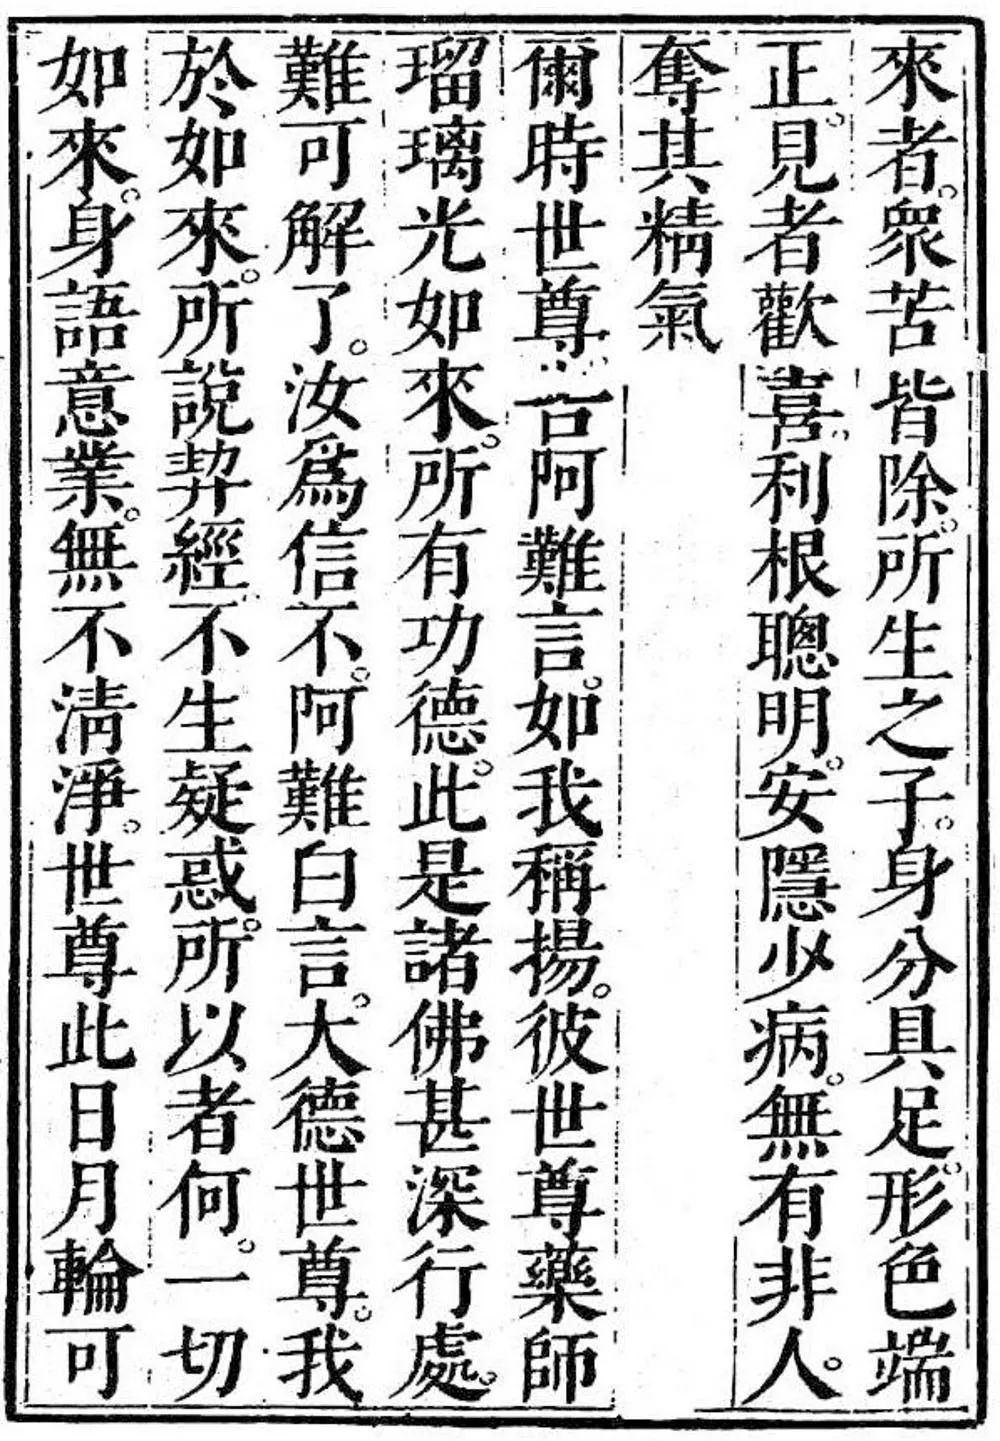 來者。衆苦皆除。所生之子。身分具足。形色端
正。見者歡喜。利根聰明。安隱少病。無有非人。
奪其精氣
爾時世尊言阿難言。如我稱揚。彼世尊藥師
瑠璃光如來。所有功德。此是諸佛甚深行處。
難可解了。汝爲信不。阿難白言。大德世尊。我
於如來。所說契經。不生疑惑。所以者何。一切
如來。身語意業。無不淸淨。世尊此日月輪可